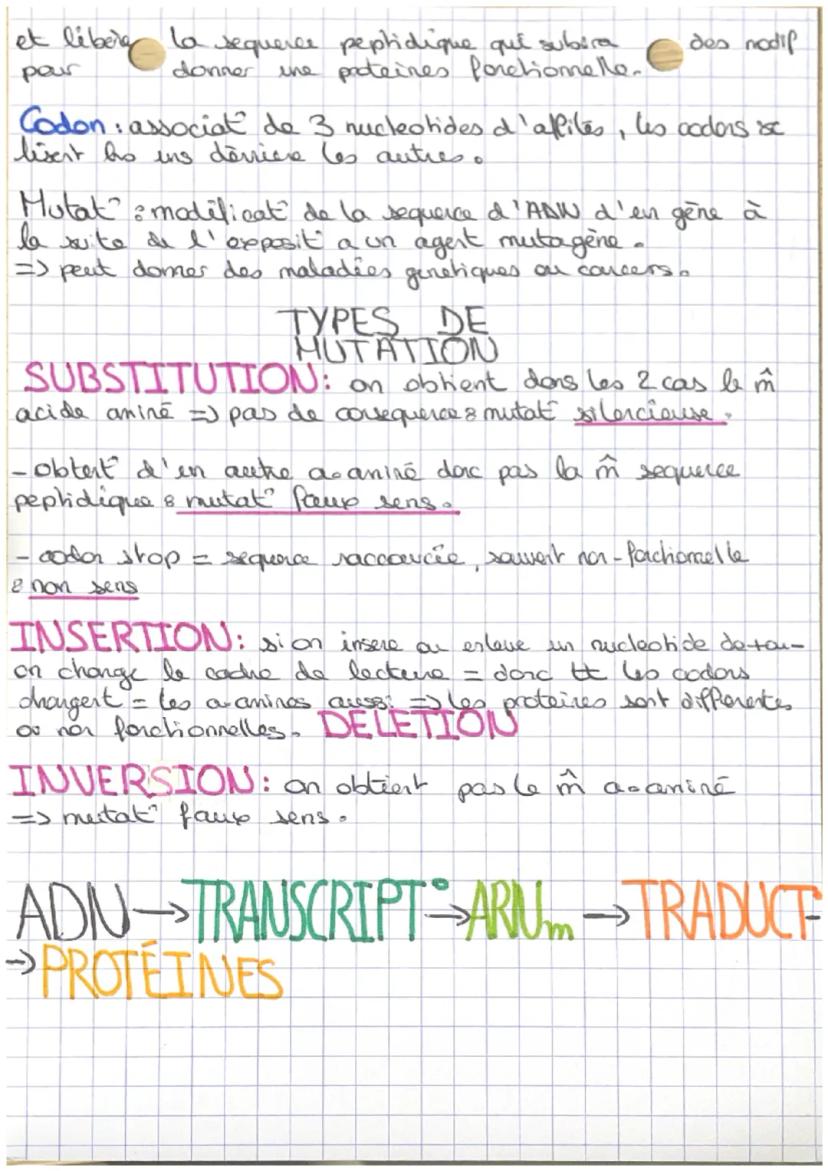 et libère la sequence peptidique qui subira des modif
pour donner une proteines fonctionnelle.
Codon : associat° de 3 nucleotides d'affilés, les codons se
lisent les uns dèrriere les autres.
Mutat° : modificat° de la sequence d'ADN d'un gène à
la suite de l'exposit° a un agent mutagène.
=> peut donner des maladies genetiques ou cancers.
TYPES DE
MUTATION
SUBSTITUTION: on obtient dans les 2 cas le m̂
acide aminé => pas de consequence : mutat° silencieuse.
- obtent° d'un autre a.aminé donc pas la m̂ sequence
peptidique : mutat° faux sens.
- codon stop = sequence raccourcie, souvent non-fonctionnelle
: non sens
INSERTION: si on insere ou enleve un nucleotide
on change le cadre de lecture = donc tt les codons
changent = les a.aminés aussi => les proteines sont differentes
ou non fonctionnelles. DELETION
INVERSION: on obtient pas le m̂ a.aminé
=> mutat° faux sens.
ADN → TRANSCRIPT° → ARNm → TRADUCT°
→ PROTÉINES